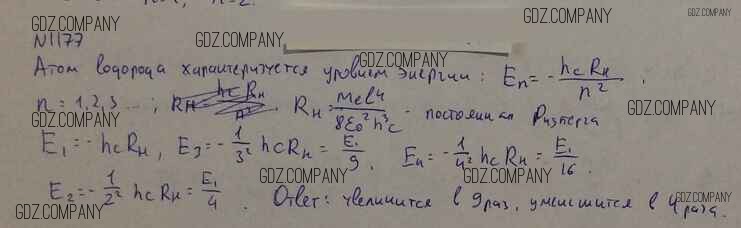 n=2.
GDZ.COMPANY
GDZ.COMPANY
N1177
GDZ.COMPANY
GDZ.COMPANY
Атом водорода характеризуется уровнем энергии: En = - hcRн / n² .
GDZ.COMPANY
n = 1,2,3 ...; Rн = mee⁴ / 8ε0²h³c - постоянная Ридберга
GDZ.COMPANY
GDZ.COMPANY
E1 = - hcRн, E3 = - 1/3² hcRн = E1/9 . E4 = - 1/4² hcRн = E1/16 .
GDZ.COMPANY
GDZ.COMPANY
GDZ.COMPANY
E2 = - 1/2² hcRн = E1/4 . Ответ: увеличится в 9 раз, уменшится в 4 раза.
GDZ.COMPANY
GDZ.COMPANY